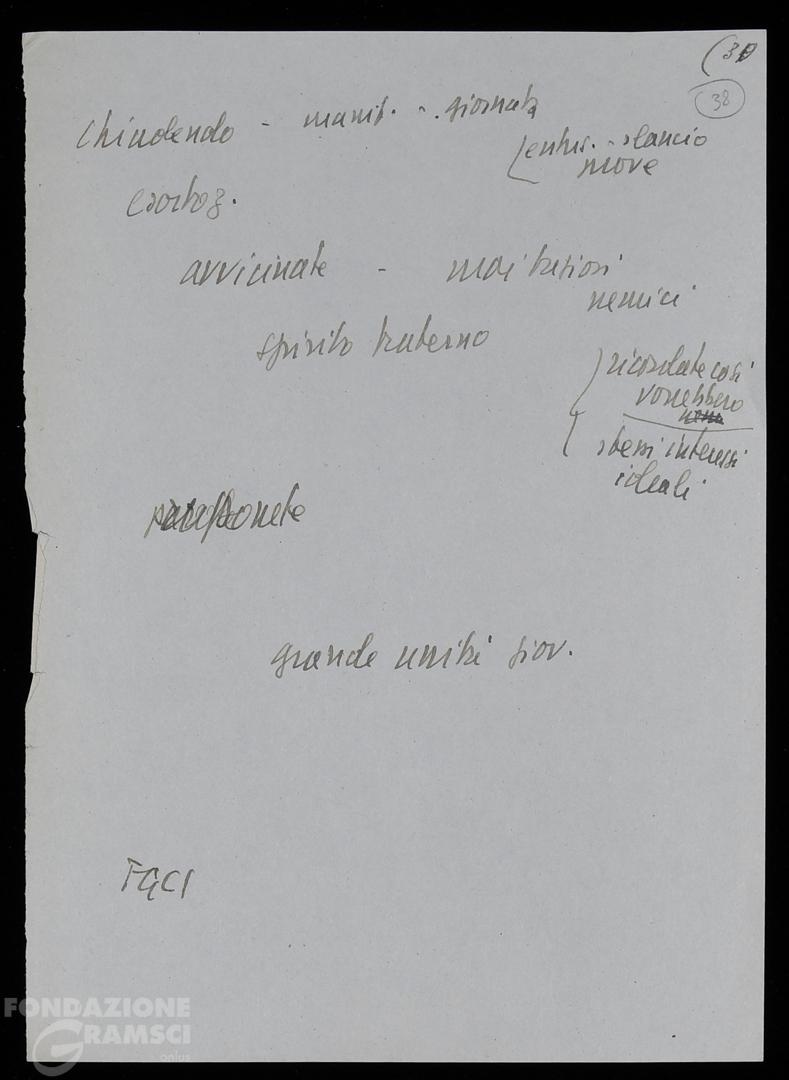 (38
38
Chiudendo - manif. - giornata
(entus. - slancio
esortaz.
avvicinate - mai
nemici
spirito fraterno
ricordate così
vorrebbero
stessi interessi
ideali
grande unità giov.
FGCI
FONDAZIONE
GRAMSCI
onlus